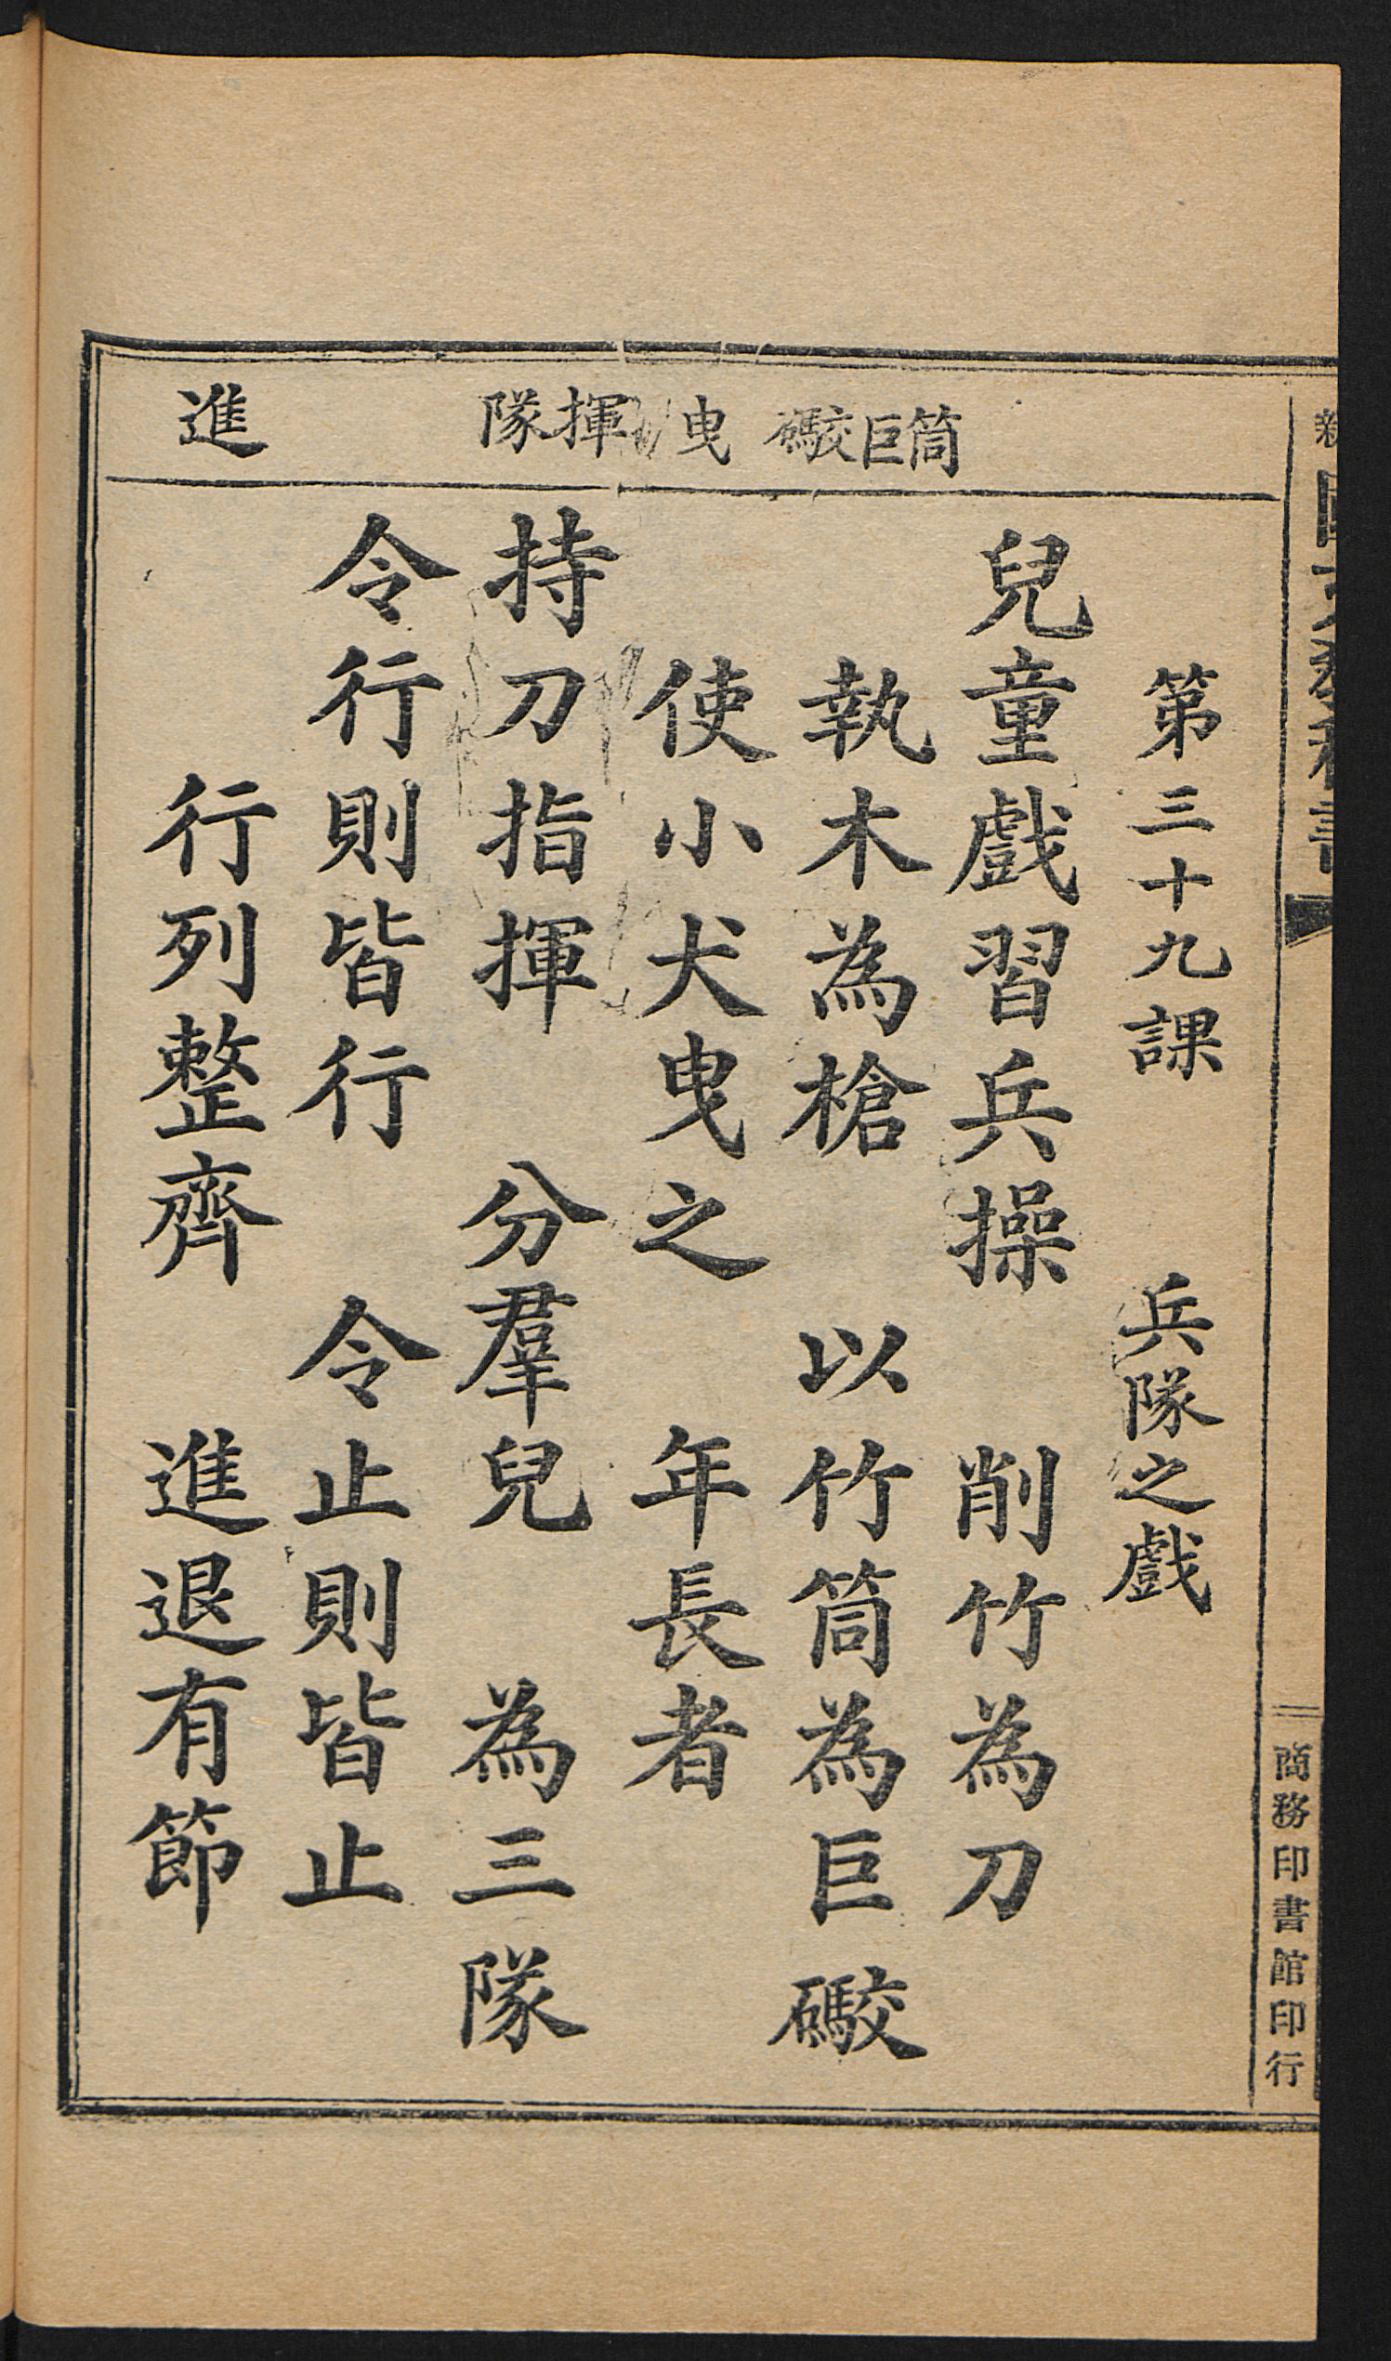 第三十九課 兵隊之戲
筒巨礮 曳 揮隊 進
兒童戲習兵操 削竹為刀
執木為槍 以竹筒為巨礮
使小犬曳之 年長者
持刀指揮 分羣兒 為三隊
令行則皆行 令止則皆止
行列整齊 進退有節
商務印書館印行